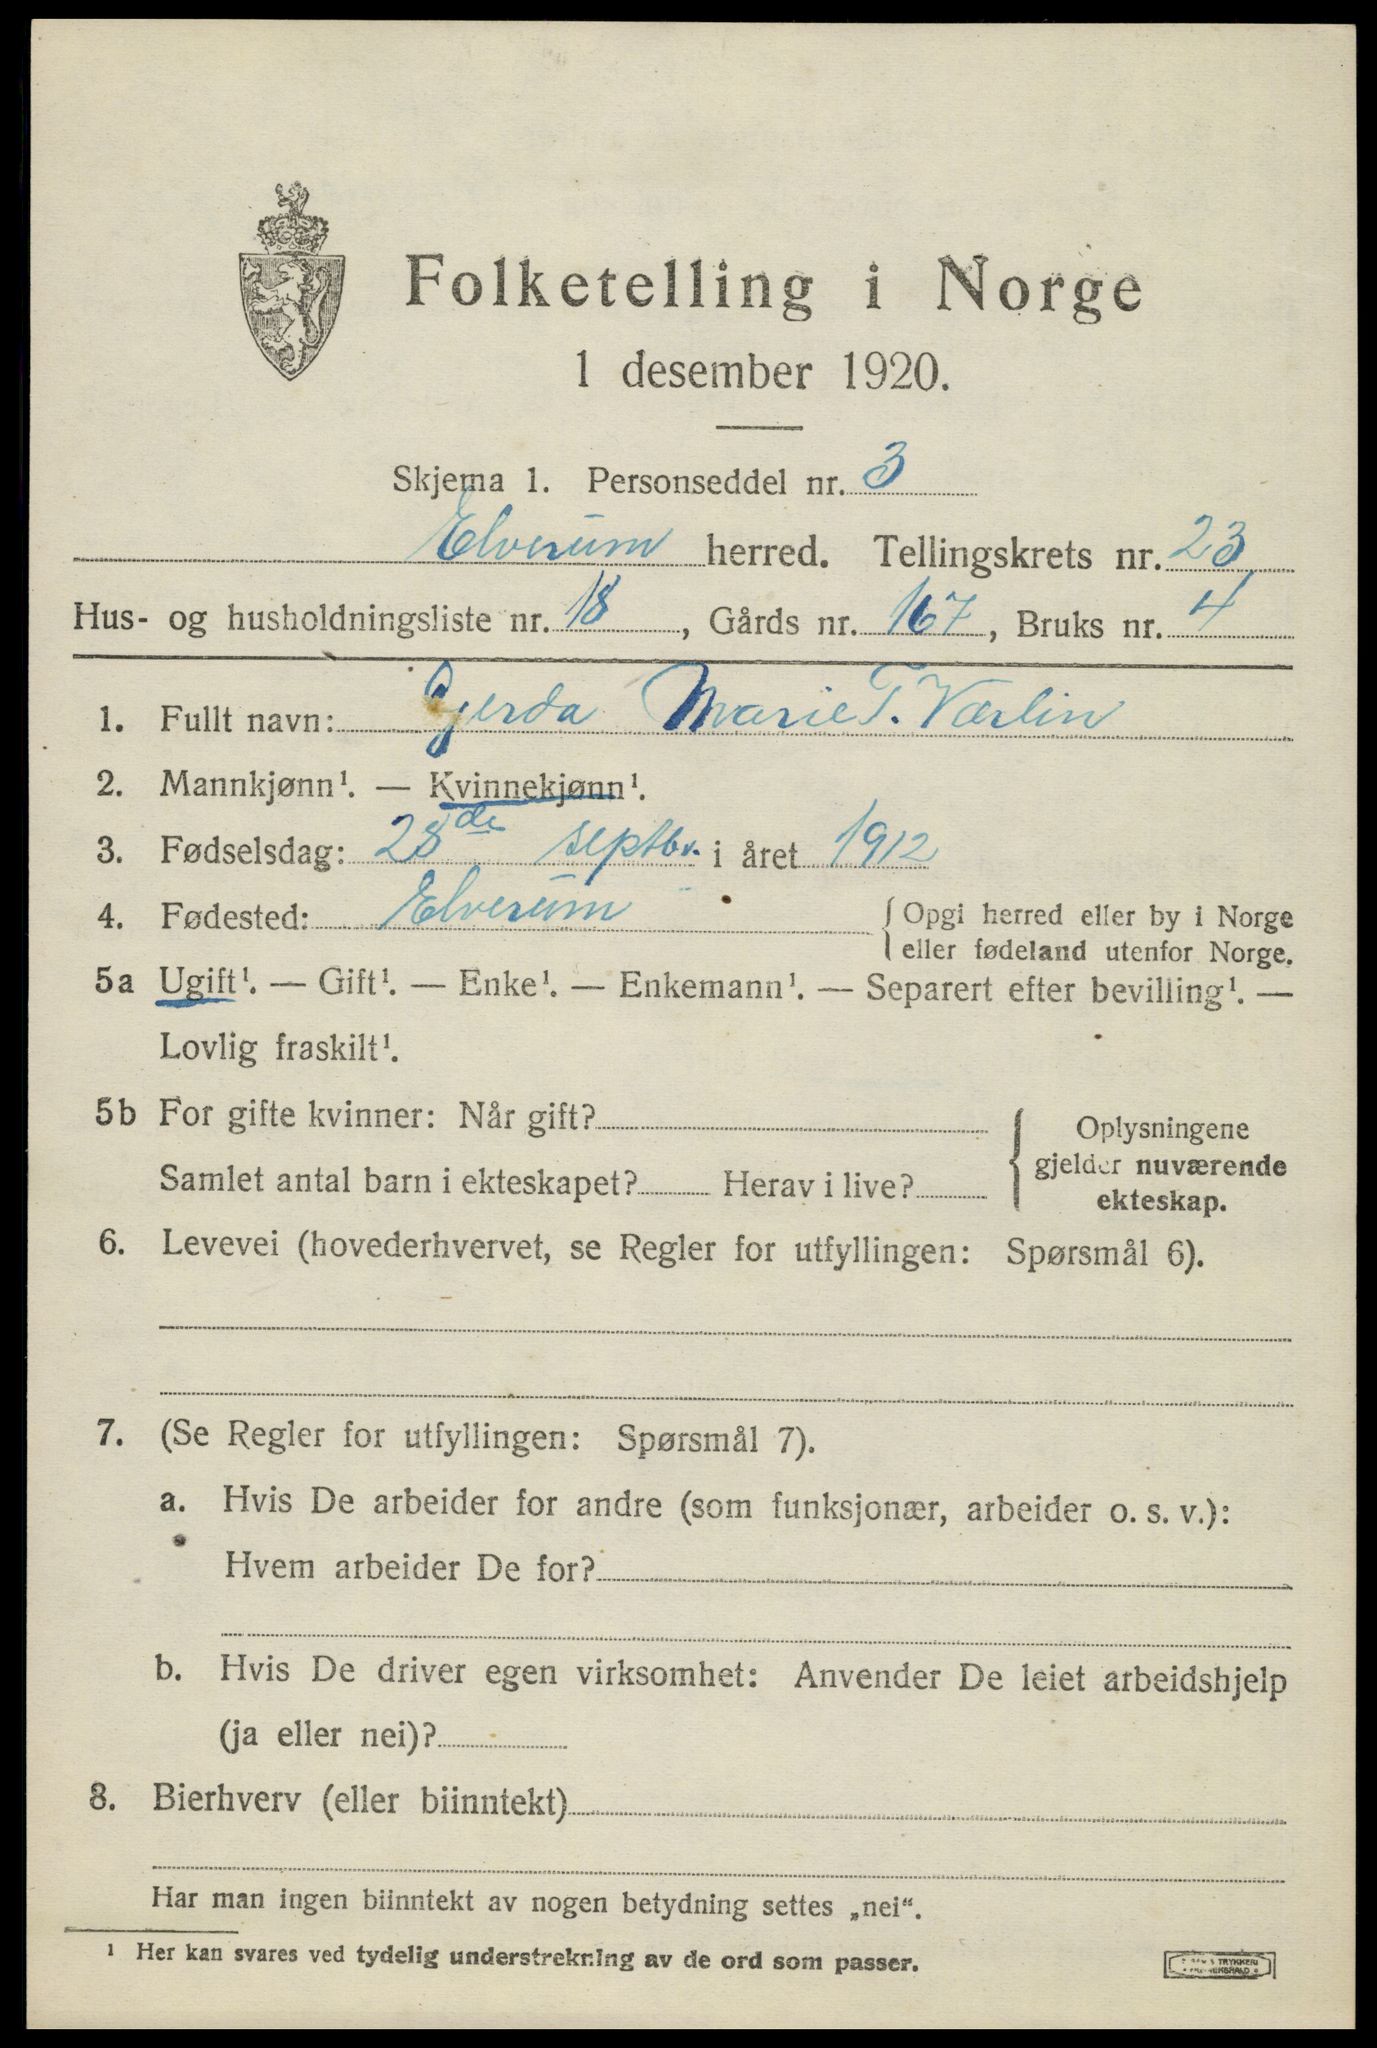 Folketelling i Norge
1 desember 1920.
Skjema 1. Personseddel nr. 3
Elverum herred. Tellingskrets nr. 23
Hus- og husholdningsliste nr. 18, Gårds nr. 167, Bruks nr. 4
1. Fullt navn: Gjerda Marie T. Værlin
2. Mannkjønn¹. — Kvinnekjønn¹.
3. Fødselsdag: 28de septbr. i året 1912
4. Fødested: Elverum {Opgi herred eller by i Norge
eller fødeland utenfor Norge.
5a Ugift¹. — Gift¹. — Enke¹. — Enkemann¹. — Separert efter bevilling¹. —
Lovlig fraskilt¹.
5b For gifte kvinner: Når gift?
Samlet antal barn i ekteskapet? Herav i live?
{Oplysningene
gjelder nuværende
ekteskap.
6. Levevei (hovederhvervet, se Regler for utfyllingen: Spørsmål 6).
7. (Se Regler for utfyllingen: Spørsmål 7).
a. Hvis De arbeider for andre (som funksjonær, arbeider o. s. v.):
Hvem arbeider De for?
b. Hvis De driver egen virksomhet: Anvender De leiet arbeidshjelp
(ja eller nei)?
8. Bierhverv (eller biinntekt)
Har man ingen biinntekt av nogen betydning settes „nei“.
¹ Her kan svares ved tydelig understrekning av de ord som passer.